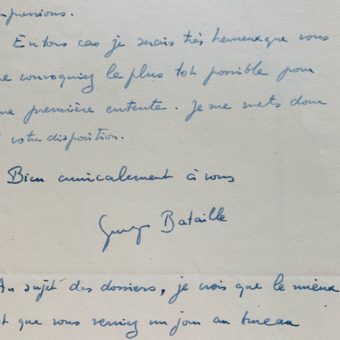 mpressions.
En tous cas je serais très heureux que vous
me convoquiez le plus tôt possible pour
une première entente. Je me mets donc
à votre disposition.
Bien amicalement à vous
Georges Bataille
Au sujet des dossiers, je crois que le mieux
est que vous veniez un jour au bureau